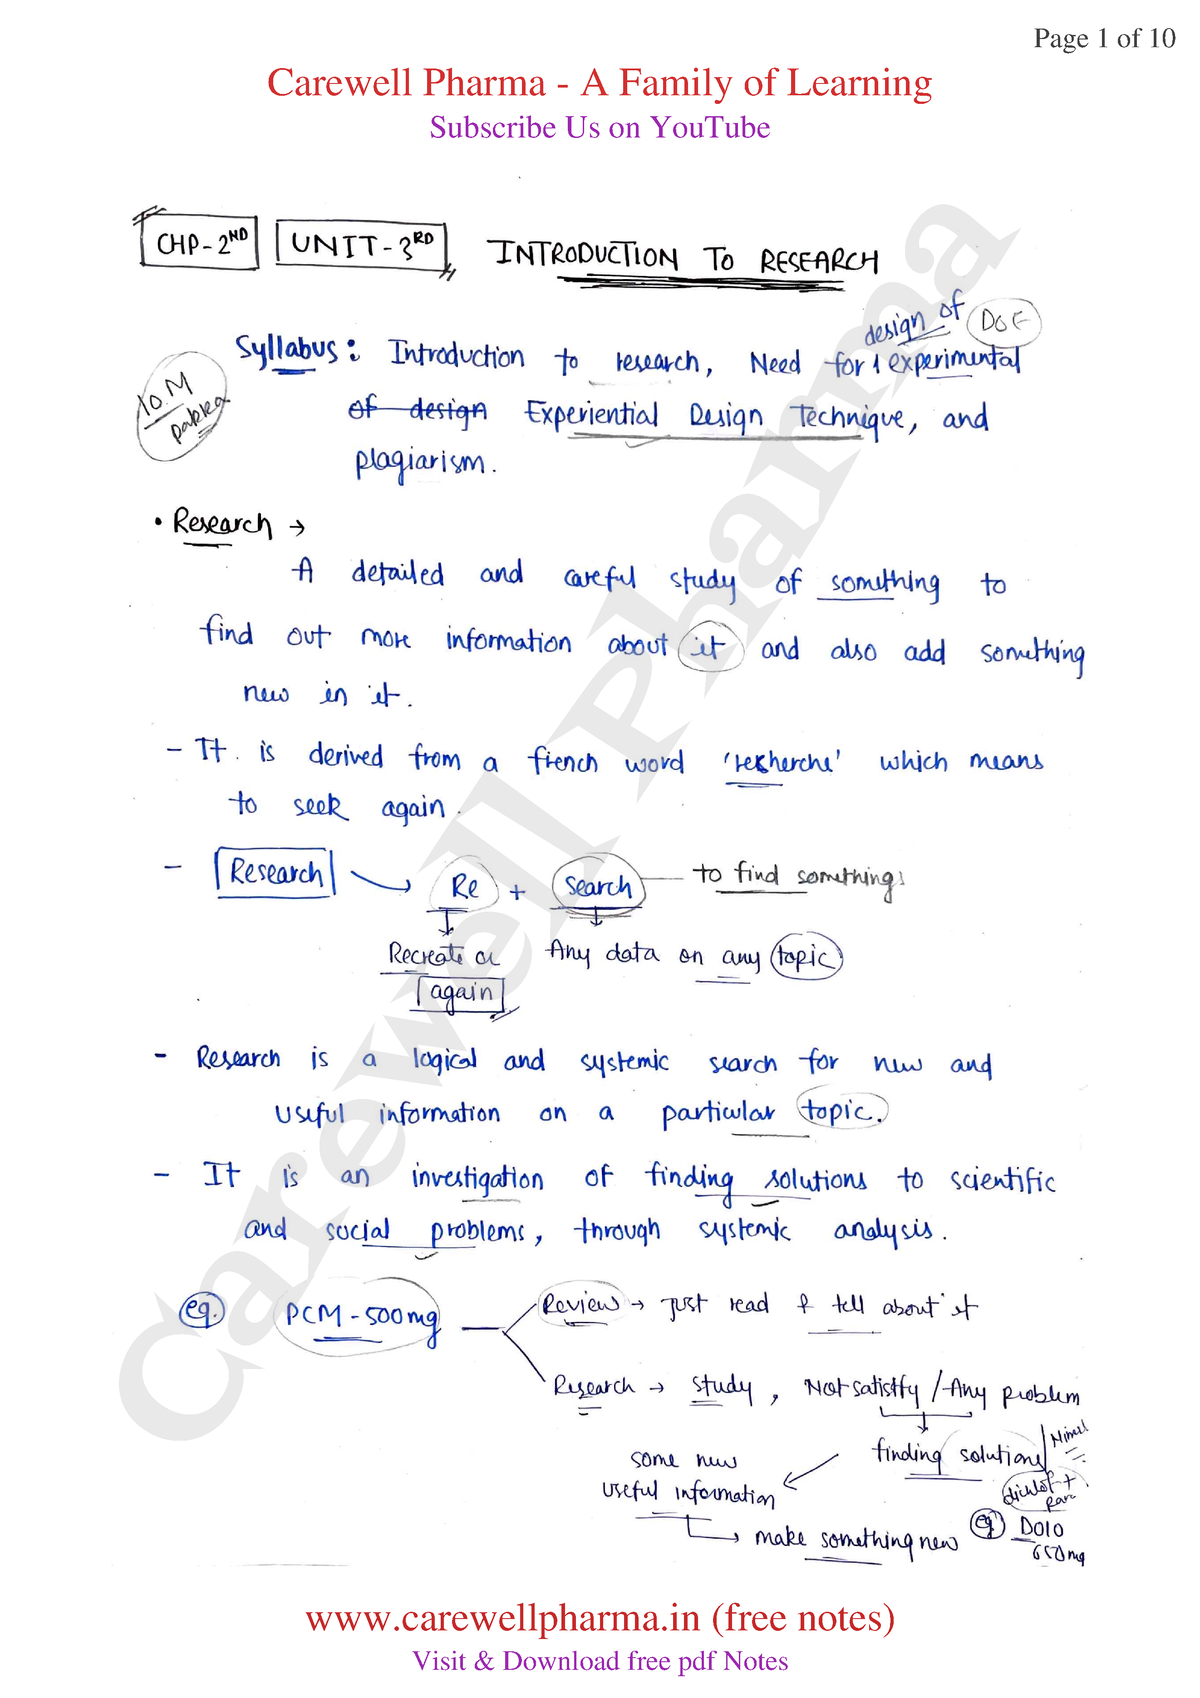 Page 1 of 10
Carewell Pharma - A Family of Learning
Subscribe Us on YouTube
CHP-2ND UNIT-3RD INTRODUCTION TO RESEARCH
design of DOE
Syllabus: Introduction to research, Need for experimental
10M
pakka
of design Experiential Design Technique, and
plagiarism.
• Research →
A detailed and careful study of something to
find out more information about it and also add something
new in it.
- It is derived from a french word 'recherche' which means
to seek again.
- Research → Re + Search — to find something
Recreate or Any data on any topic
again
- Research is a logical and systemic search for new and
useful information on a particular topic.
- It is an investigation of finding solutions to scientific
and social problems, through systemic analysis.
eg. PCM-500mg
Review → Just read & tell about it
Research → Study, Not satistfy / Any problem
some new finding solutions
useful information
→ make something new eg Dolo
650mg
Carewell Pharma
www.carewellpharma.in (free notes)
Visit & Download free pdf Notes